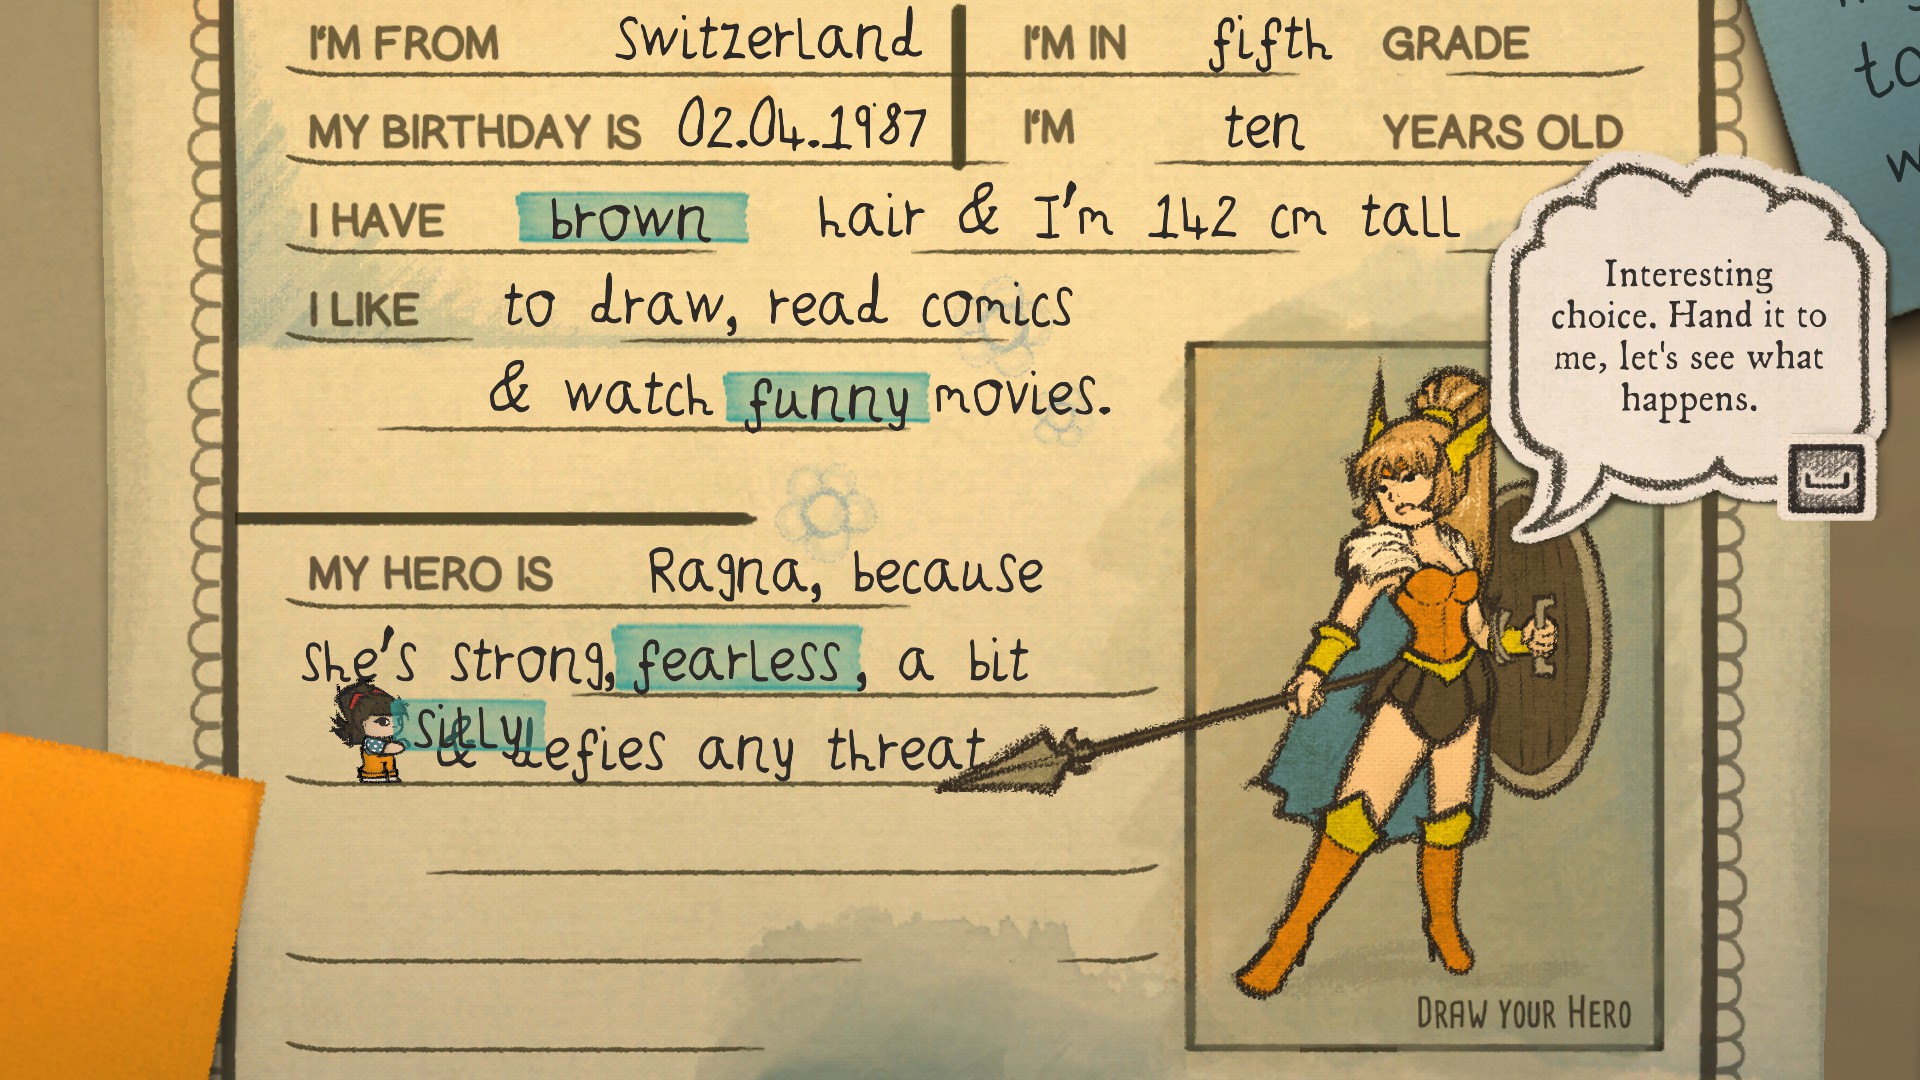 I'M FROM Switzerland I'M IN fifth GRADE
MY BIRTHDAY IS 02.04.1987 I'M ten YEARS OLD
I HAVE brown hair & I'm 142 cm tall
I LIKE to draw, read comics
& watch funny movies.
MY HERO IS Ragna, because
she's strong, fearless, a bit
silly
& defies any threat
Interesting
choice. Hand it to
me, let's see what
happens.
DRAW YOUR HERO